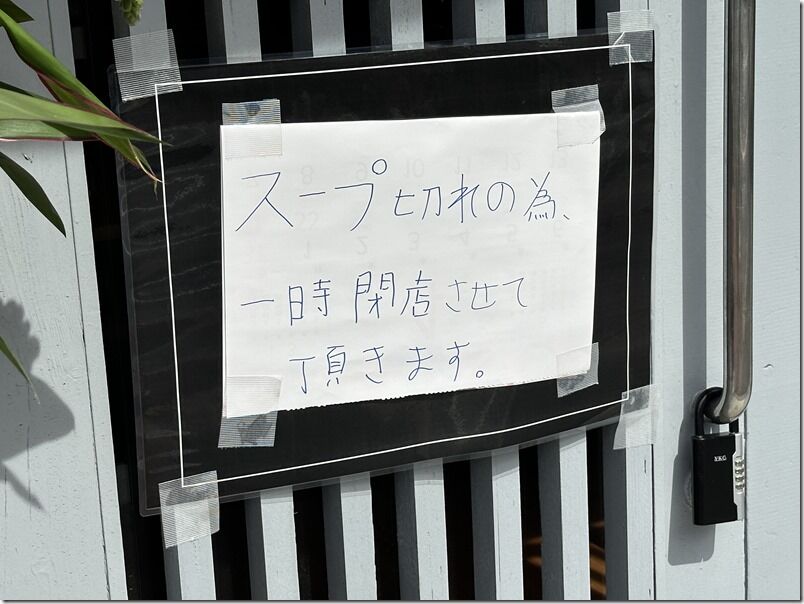 スープ切れの為、
一時閉店させて
頂きます。